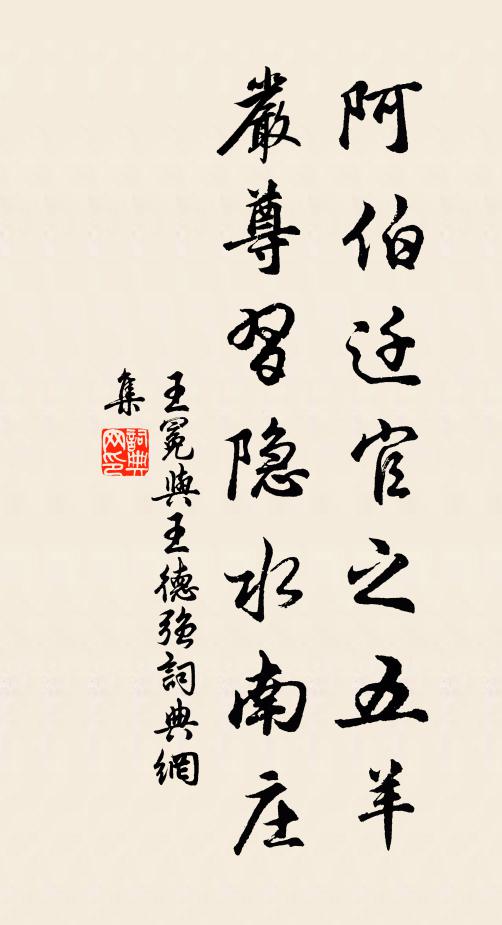 阿伯迁官之五羊
嚴尊習隐水南庄
王冕與王德强詞典網
集
詞典
网印